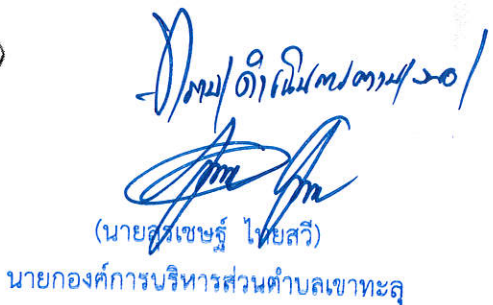 ทราบ/ดำเนินการตามเสนอ
(นายสุรเชษฐ์ ไทยสวี)
นายกองค์การบริหารส่วนตำบลเขาทะลุ